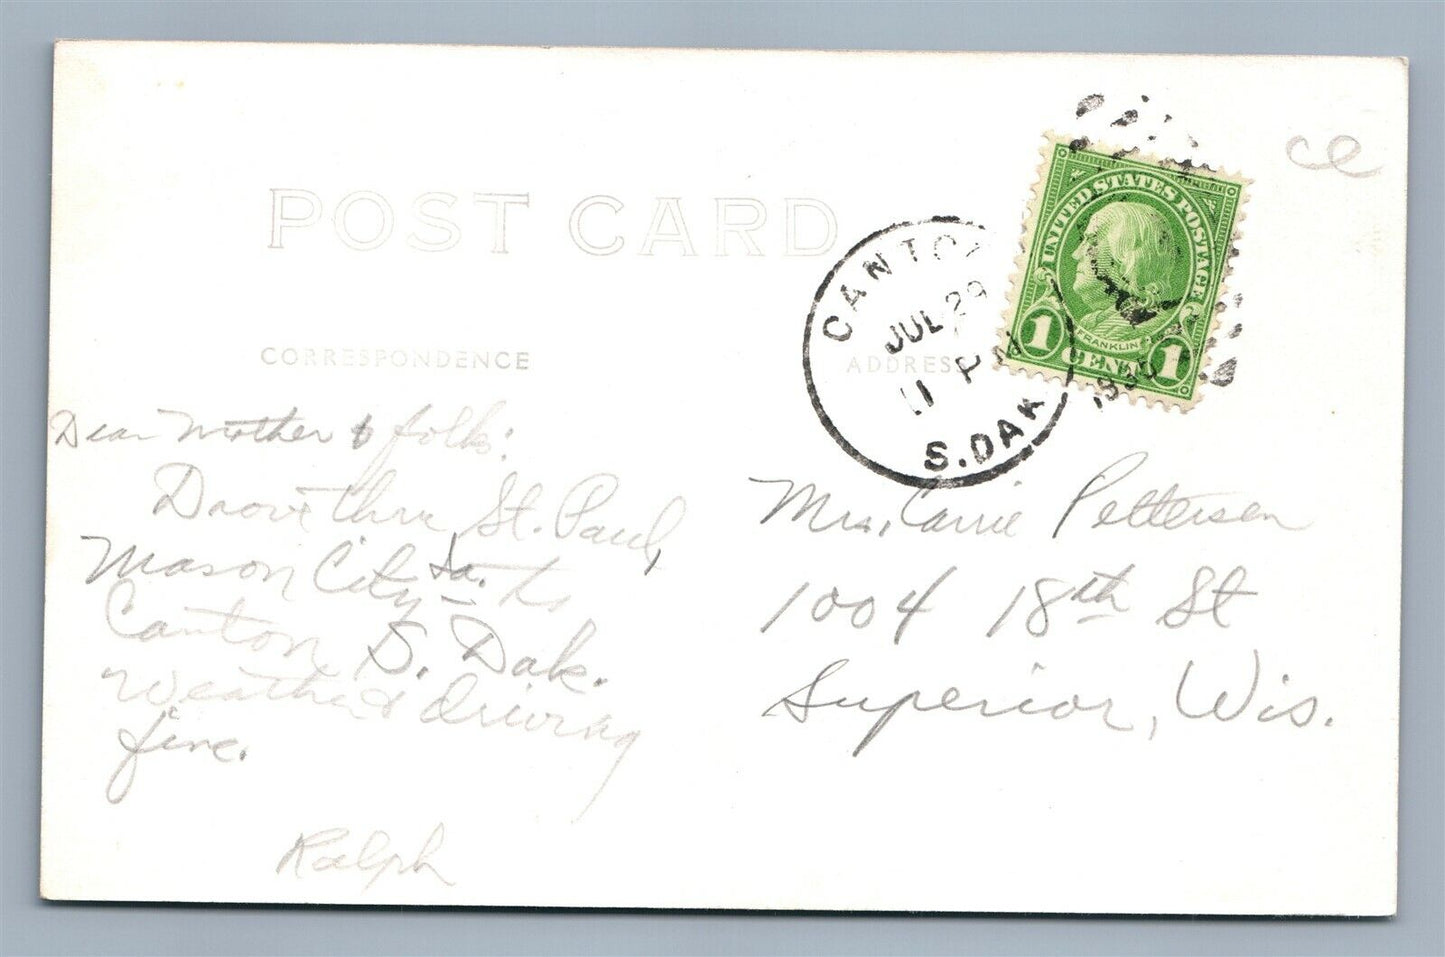 POST CARD
CORRESPONDENCE
ADDRESS
CANTON
JUL 29
11 PM
S. DAK
UNITED STATES POSTAGE
FRANKLIN
1 CENT 1
Dear Mother & folks:
Drove thru St. Paul,
Mason City Ia. to
Canton, S. Dak.
Weather & driving
fine.
Ralph
Mrs. Carrie Pettersen
1004 18th St
Superior, Wis.